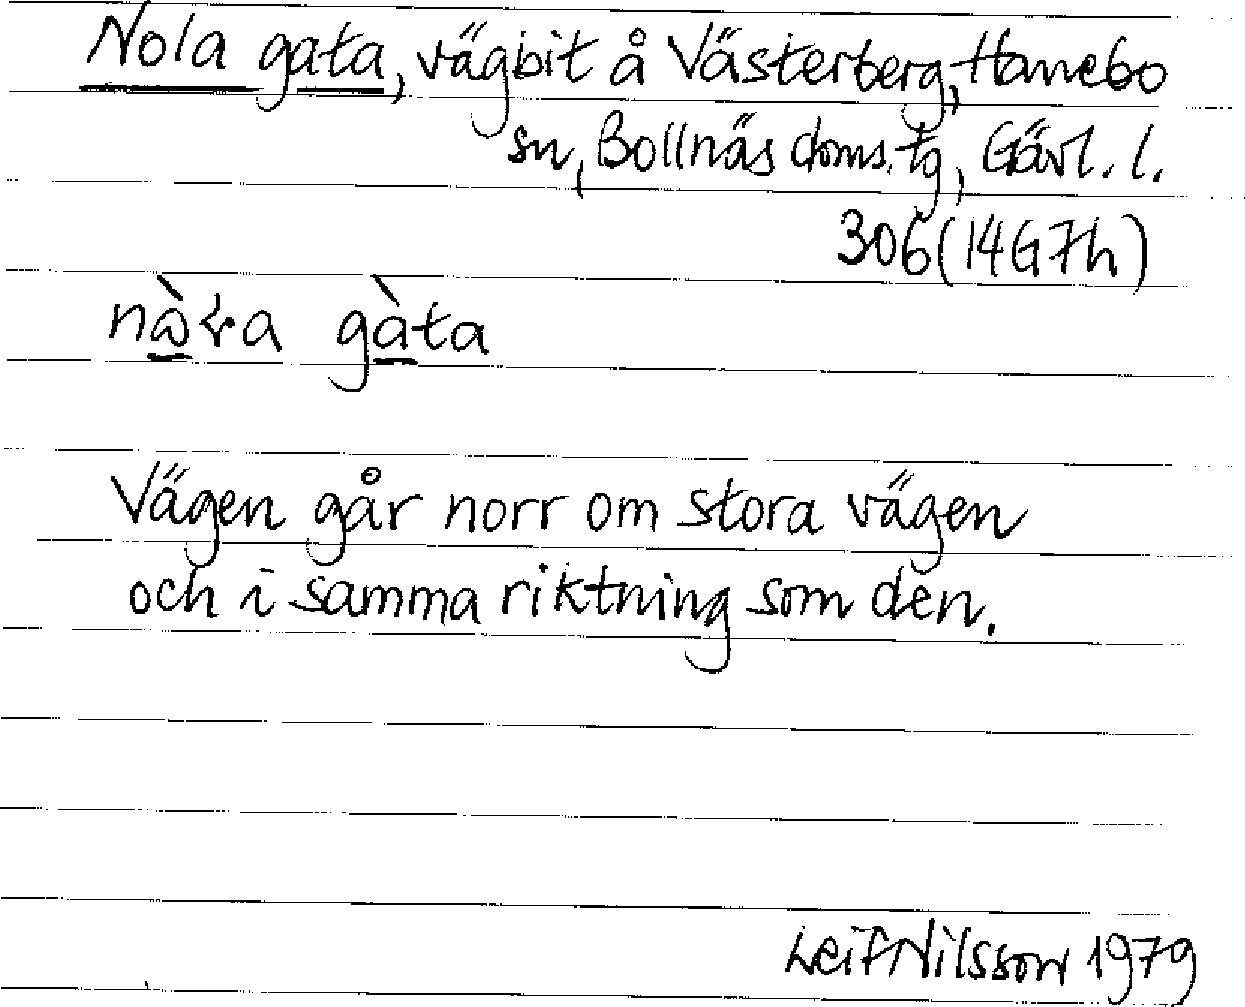 Nola gata, vägbit å Västerberg, Hanebo
sn, Bollnäs doms.tg, Gävl. l.
306 (14G7h)
gàta
Vägen går norr om stora vägen
och i samma riktning som den.
Leif Nilsson 1979